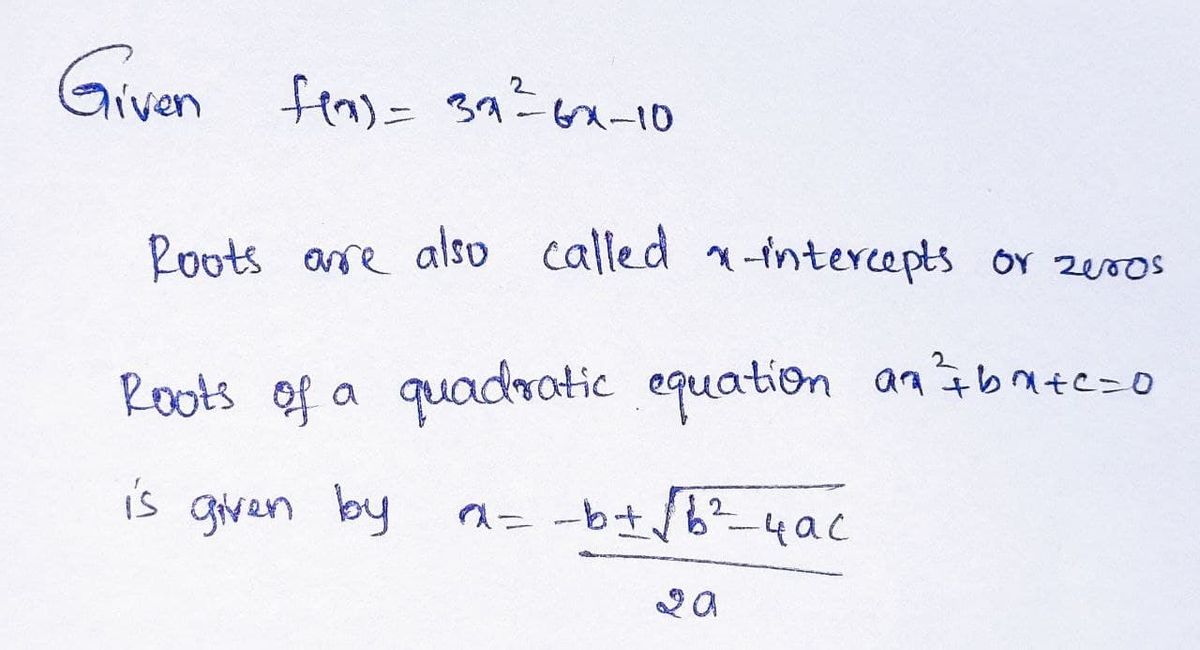 Given f(x) = 3x² - 6x - 10
Roots are also called x-intercepts or zeros
Roots of a quadratic equation ax² + bx + c = 0
is given by x = -b ± √b² - 4ac
2a